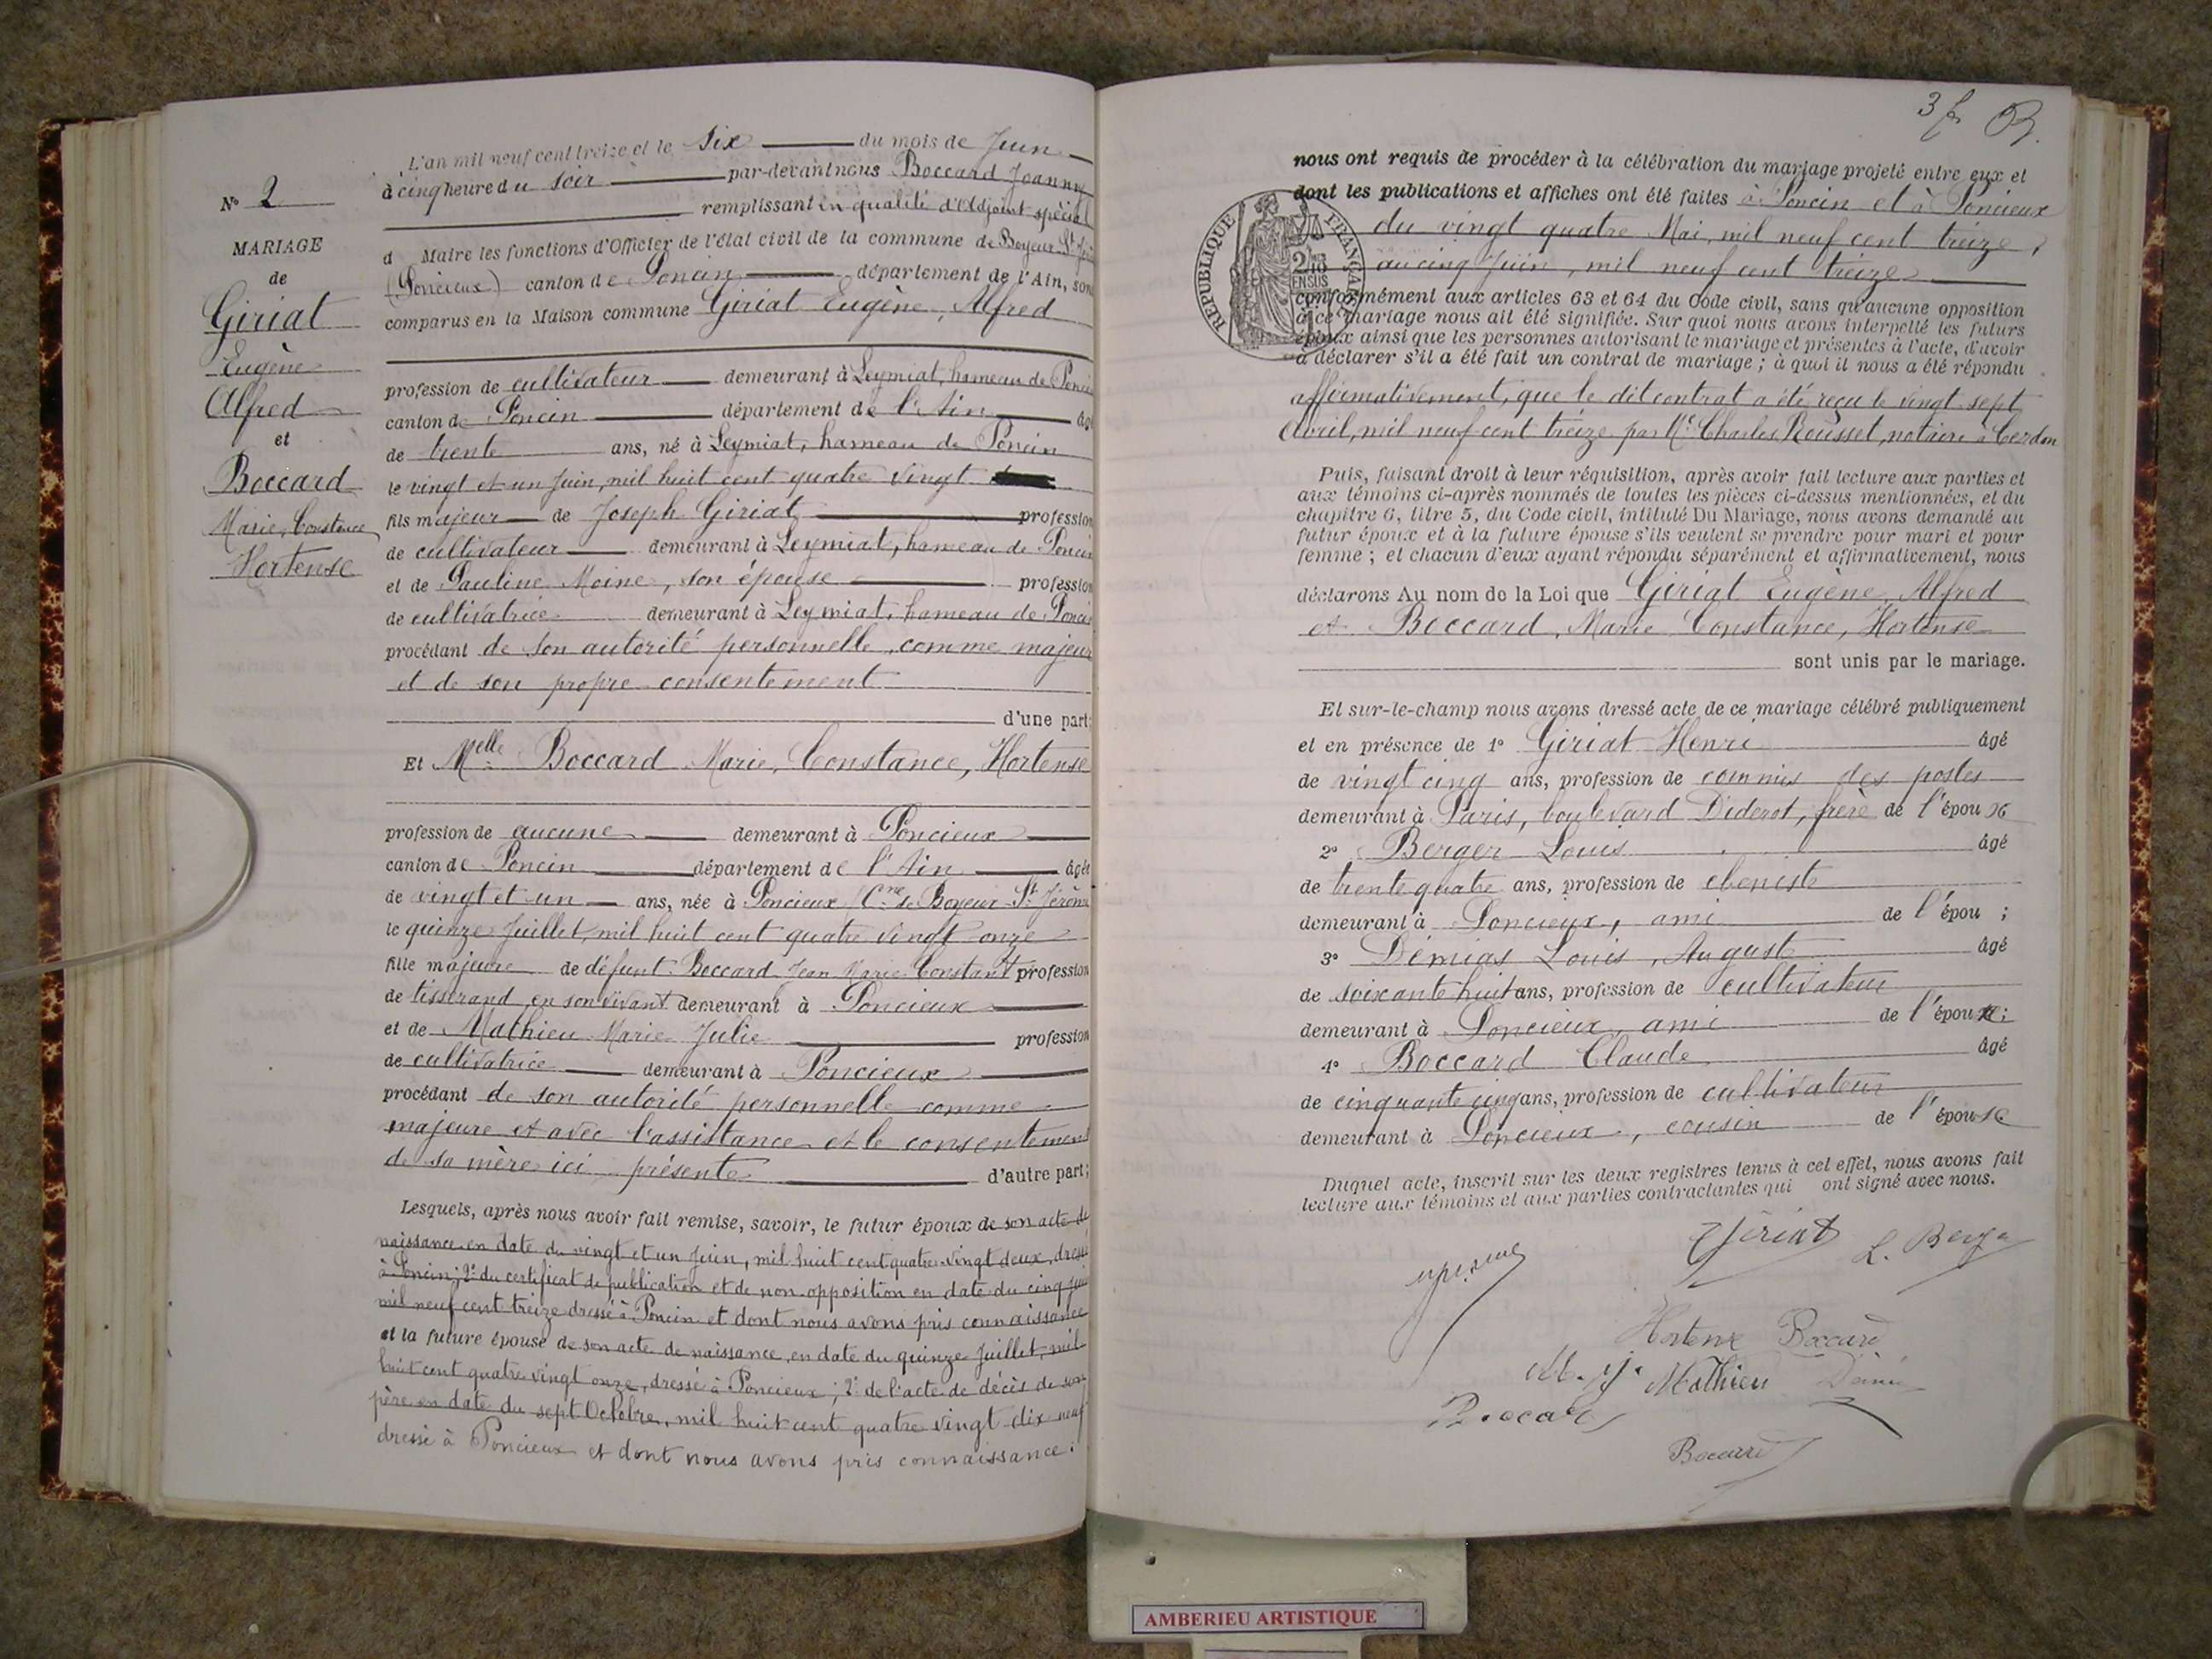 L'an mil neuf cent treize et le six du mois de Juin
à cinq heure du soir par-devant nous Boccard Joanny
remplissant en qualité d'Adjoint spécial
d Maire les fonctions d'Officier de l'état civil de la commune de Boyeux St Jér
(Poncieux) canton de Poncin département de l'Ain, sont
comparus en la Maison commune Giriat Eugène, Alfred
profession de cultivateur demeurant à Leymiat, hameau de Poncin
canton de Poncin département de l'Ain âgé
de trente ans, né à Leymiat, hameau de Poncin
le vingt et un Juin, mil huit cent quatre vingt
fils majeur de Joseph Giriat profession
de cultivateur demeurant à Leymiat, hameau de Poncin
et de Pauline Moine, son épouse profession
de cultivatrice demeurant à Leymiat, hameau de Poncin
procédant de son autorité personnelle, comme majeur
et de son propre consentement
d'une part;
Et Melle Boccard Marie, Constance, Hortense
profession de aucune demeurant à Poncieux
canton de Poncin département de l'Ain âgée
de vingt et un ans, née à Poncieux Cne de Boyeux-St Jérôme
le quinze Juillet, mil huit cent quatre vingt onze
fille majeure de défunt Boccard Jean Marie Constant profession
de tisserand, en son vivant demeurant à Poncieux
et de Mathieu Marie Julie profession
de cultivatrice demeurant à Poncieux
procédant de son autorité personnelle comme
majeure et avec l'assistance et le consentement
de sa mère ici présente d'autre part;
Lesquels, après nous avoir fait remise, savoir, le futur époux de son acte de
naissance en date du vingt et un Juin, mil huit cent quatre-vingt deux, dressé
à Poncin; 2° du certificat de publication et de non-opposition en date du cinq Juin
mil neuf cent treize dressé à Poncin et dont nous avons pris connaissance
et la future épouse de son acte de naissance, en date du quinze Juillet, mil
huit cent quatre vingt onze, dressé à Poncieux; 2° de l'acte de décès de son
père en date du sept Octobre, mil huit cent quatre vingt dix neuf
dressé à Poncieux et dont nous avons pris connaissance.
N° 2
MARIAGE
de
Giriat
Eugène
Alfred
et
Boccard
Marie, Constance
Hortense
3 f
nous ont requis de procéder à la célébration du mariage projeté entre eux et
dont les publications et affiches ont été faites à Poncin et à Poncieux
du vingt quatre Mai, mil neuf cent treize,
au cinq Juin, mil neuf cent treize
REPUBLIQUE FRANÇAISE
2/10
EN SUS
conformément aux articles 63 et 64 du Code civil, sans qu'aucune opposition
à ce mariage nous ait été signifiée. Sur quoi nous avons interpellé les futurs
époux ainsi que les personnes autorisant le mariage et présentes à l'acte, d'avoir
à déclarer s'il a été fait un contrat de mariage; à quoi il nous a été répondu
affirmativement, que le dit contrat a été reçu le vingt sept
Avril, mil neuf cent treize par Me Charles Rousset, notaire à Cerdon
Puis, faisant droit à leur réquisition, après avoir fait lecture aux parties et
aux témoins ci-après nommés de toutes les pièces ci-dessus mentionnées, et du
chapitre 6, titre 5, du Code civil, intitulé Du Mariage, nous avons demandé au
futur époux et à la future épouse s'ils veulent se prendre pour mari et pour
femme; et chacun d'eux ayant répondu séparément et affirmativement, nous
déclarons Au nom de la Loi que Giriat Eugène, Alfred
et Boccard, Marie Constance, Hortense
sont unis par le mariage.
Et sur-le-champ nous avons dressé acte de ce mariage célébré publiquement
et en présence de 1° Giriat Henri âgé
de vingt cinq ans, profession de commis des postes
demeurant à Paris, boulevard Diderot, frère de l'époux
2° Berger Louis âgé
de trente quatre ans, profession de ébeniste
demeurant à Poncieux, ami de l'épou ;
3° Démias Louis, Auguste âgé
de soixante huit ans, profession de cultivateur
demeurant à Poncieux, ami de l'épouse;
4° Boccard Claude âgé
de cinquante cinq ans, profession de cultivateur
demeurant à Poncieux, cousin de l'épouse
Duquel acte, inscrit sur les deux registres tenus à cet effet, nous avons fait
lecture aux témoins et aux parties contractantes qui ont signé avec nous.
Giriat L. Berger
Hortense Boccard
M. J. Mathieu
Boccard
Boccard
AMBERIEU ARTISTIQUE